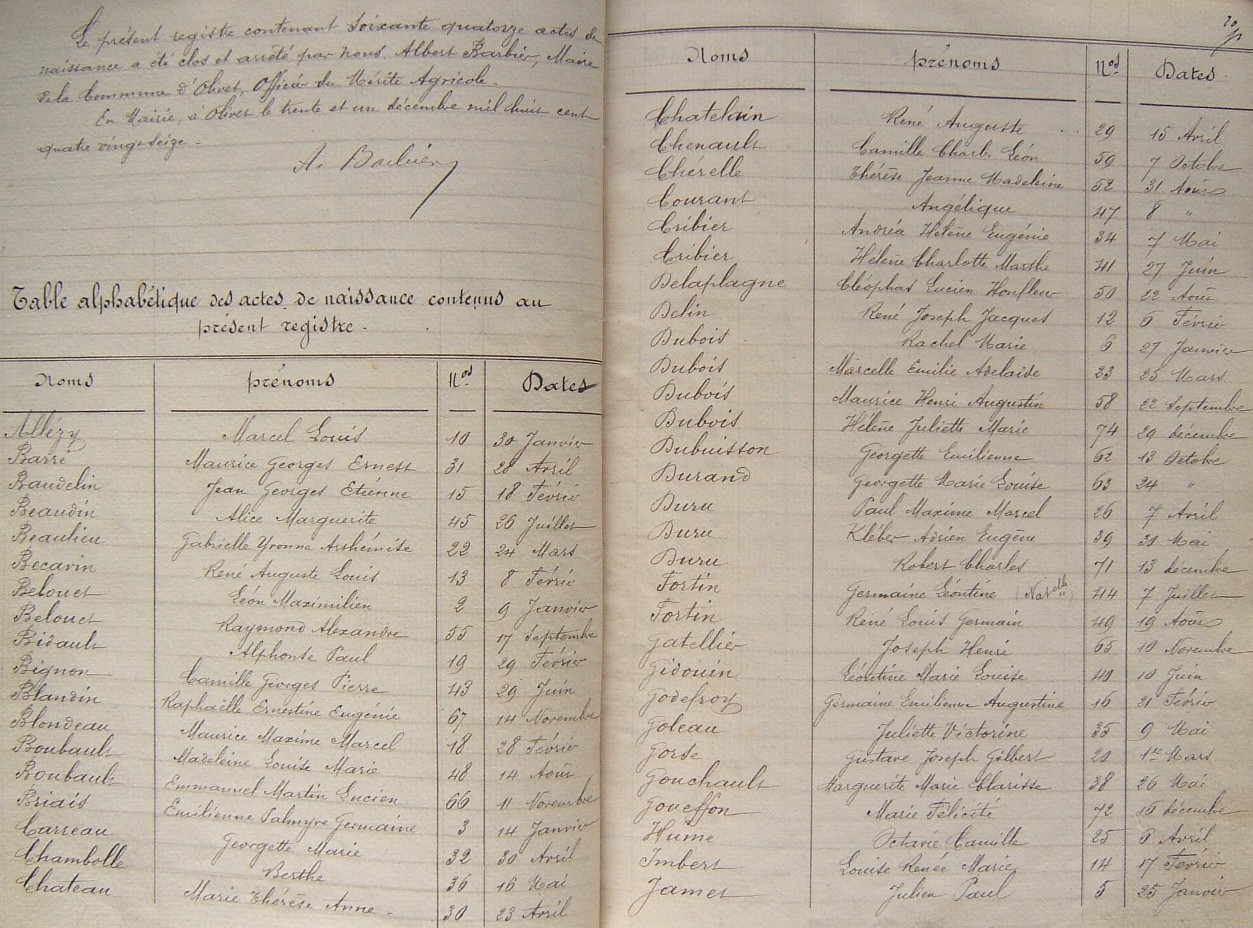 Le présent registre contenant soixante quatorze actes de
naissance a été clos et arrêté par nous Albert Barbier, Maire
de la Commune d'Olivet, Officier du Mérite Agricole.
En Mairie, à Olivet le trente et un décembre mil huit cent
quatre vingt seize.
A. Barbier
Table alphabétique des actes de naissance contenus au
présent registre.
Noms prénoms Nos Dates
Allézy Marcel Louis 10 30 Janvier
Barré Maurice Georges Ernest 31 28 Avril
Baudelin Jean Georges Etienne 15 18 Févrir
Beaudin Alice Marguerite 45 26 Juillet
Beaulieu Gabrielle Yvonne Arthémise 22 24 Mars
Becavin René Auguste Louis 13 8 Févrir
Belouet Léon Maximilien 2 9 Janvier
Belouet Raymond Alexandre 55 17 Septembre
Bidault Alphonse Paul 19 29 Févrir
Bignon Camille Georges Pierre 43 29 Juin
Blandin Raphaëlle Ernestine Eugénie 67 14 Novembre
Blondeau Maurice Maxime Marcel 18 28 Févrir
Boubault Madeleine Louise Marie 48 14 Août
Boubault Emmanuel Martin Lucien 66 11 Novembre
Briais Emilienne Palmyre Germaine 3 14 Janvier
Carreau Georgette Marie 32 30 Avril
Chambolle Berthe 36 16 Mai
Chateau Marie Thérèse Anne 30 23 Avril
Noms prénoms Nos Dates
Chatelain René Auguste 29 15 Avril
Chenault Camille Charles Léon 59 7 Octobre
Chérelle Thérèse Jeanne Madeleine 52 31 Août
Courant Angélique 47 8 "
Cribier Andréa Hélène Eugénie 34 7 Mai
Cribier Hélène Charlotte Marthe 41 27 Juin
Delaplagne Cléophas Lucien Honfleur 50 22 Août
Delin René Joseph Jacques 12 6 Févrir
Dubois Rachel Marie 6 27 Janvier
Dubois Marcelle Emilie Adelaide 23 25 Mars
Dubois Maurice Henri Augustin 58 22 Septembre
Dubois Hélène Juliette Marie 74 29 décembre
Dubuisson Georgette Emilienne 62 13 Octobre
Durand Georgette Marie Louise 63 24 "
Duru Paul Maxime Marcel 26 7 Avril
Duru Kléber Adrien Eugène 39 31 Mai
Duru Robert Charles 71 13 décembre
Fortin Germaine Léontine (Natelle) 44 7 Juillet
Fortin René Louis Germain 49 19 Août
Gatellier Joseph Henri 65 10 Novembre
Gidouin Léontine Marie Louise 40 10 Juin
Godefroy Germaine Emilienne Augustine 16 21 Févrir
Goleau Juliette Victorine 35 9 Mai
Gorse Gustave Joseph Gilbert 20 1er Mars
Gouchault Marguerite Marie Clarisse 38 26 Mai
Goueffon Marie Félicité 72 16 décembre
Hume Octavie Camille 25 6 Avril
Imbert Louise Renée Marie 14 17 Févrir
Jamet Julien Paul 5 25 Janvier